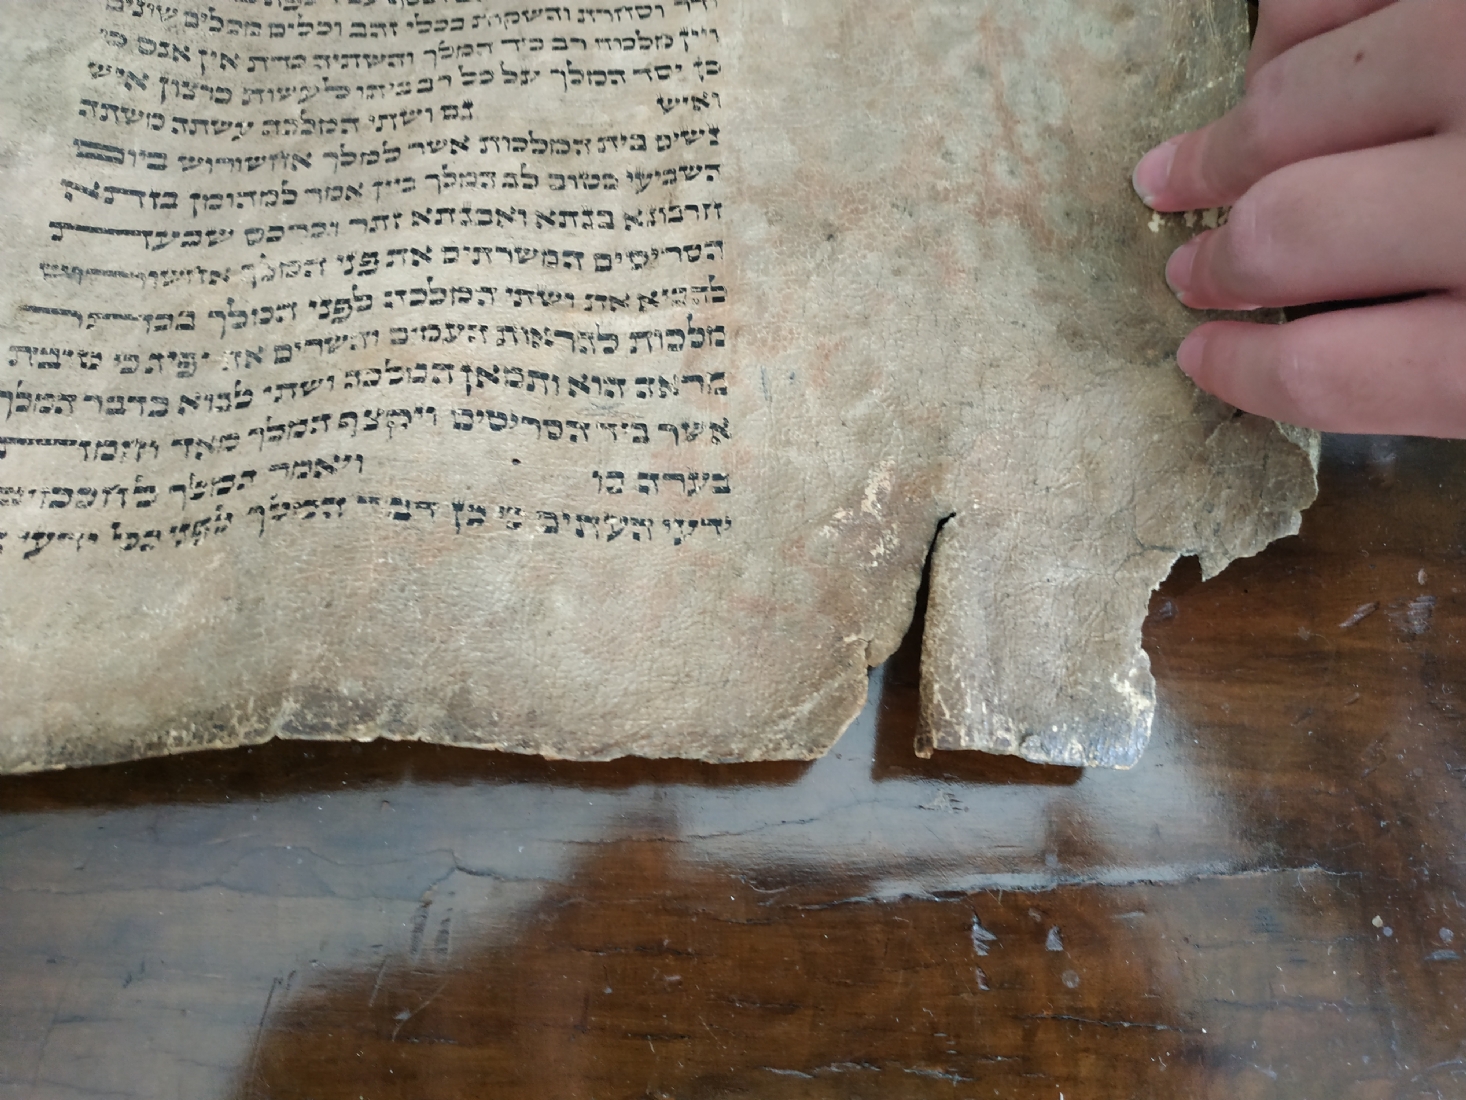 ודר וסחרת והשקות בכלי זהב וכלים מכלים שונים
ויין מלכות רב כיד המלך והשתיה כדת אין אנס כי
כן יסד המלך על כל רב ביתו לעשות כרצון איש
ואיש גם ושתי המלכה עשתה משתה
נשים בית המלכות אשר למלך אחשורוש ביום
השביעי כטוב לב המלך ביין אמר למהומן בזתא
חרבונא בגתא ואבגתא זתר וכרכס שבעת
הסריסים המשרתים את פני המלך אחשורוש
להביא את ושתי המלכה לפני המלך בכתר
מלכות להראות העמים והשרים את יפיה כי טובת
מראה הוא ותמאן המלכה ושתי לבוא בדבר המלך
אשר ביד הסריסים ויקצף המלך מאד וחמתו
בערה בו ויאמר המלך לחכמים
ידעי העתים כי כן דבר המלך לפני כל ידעי